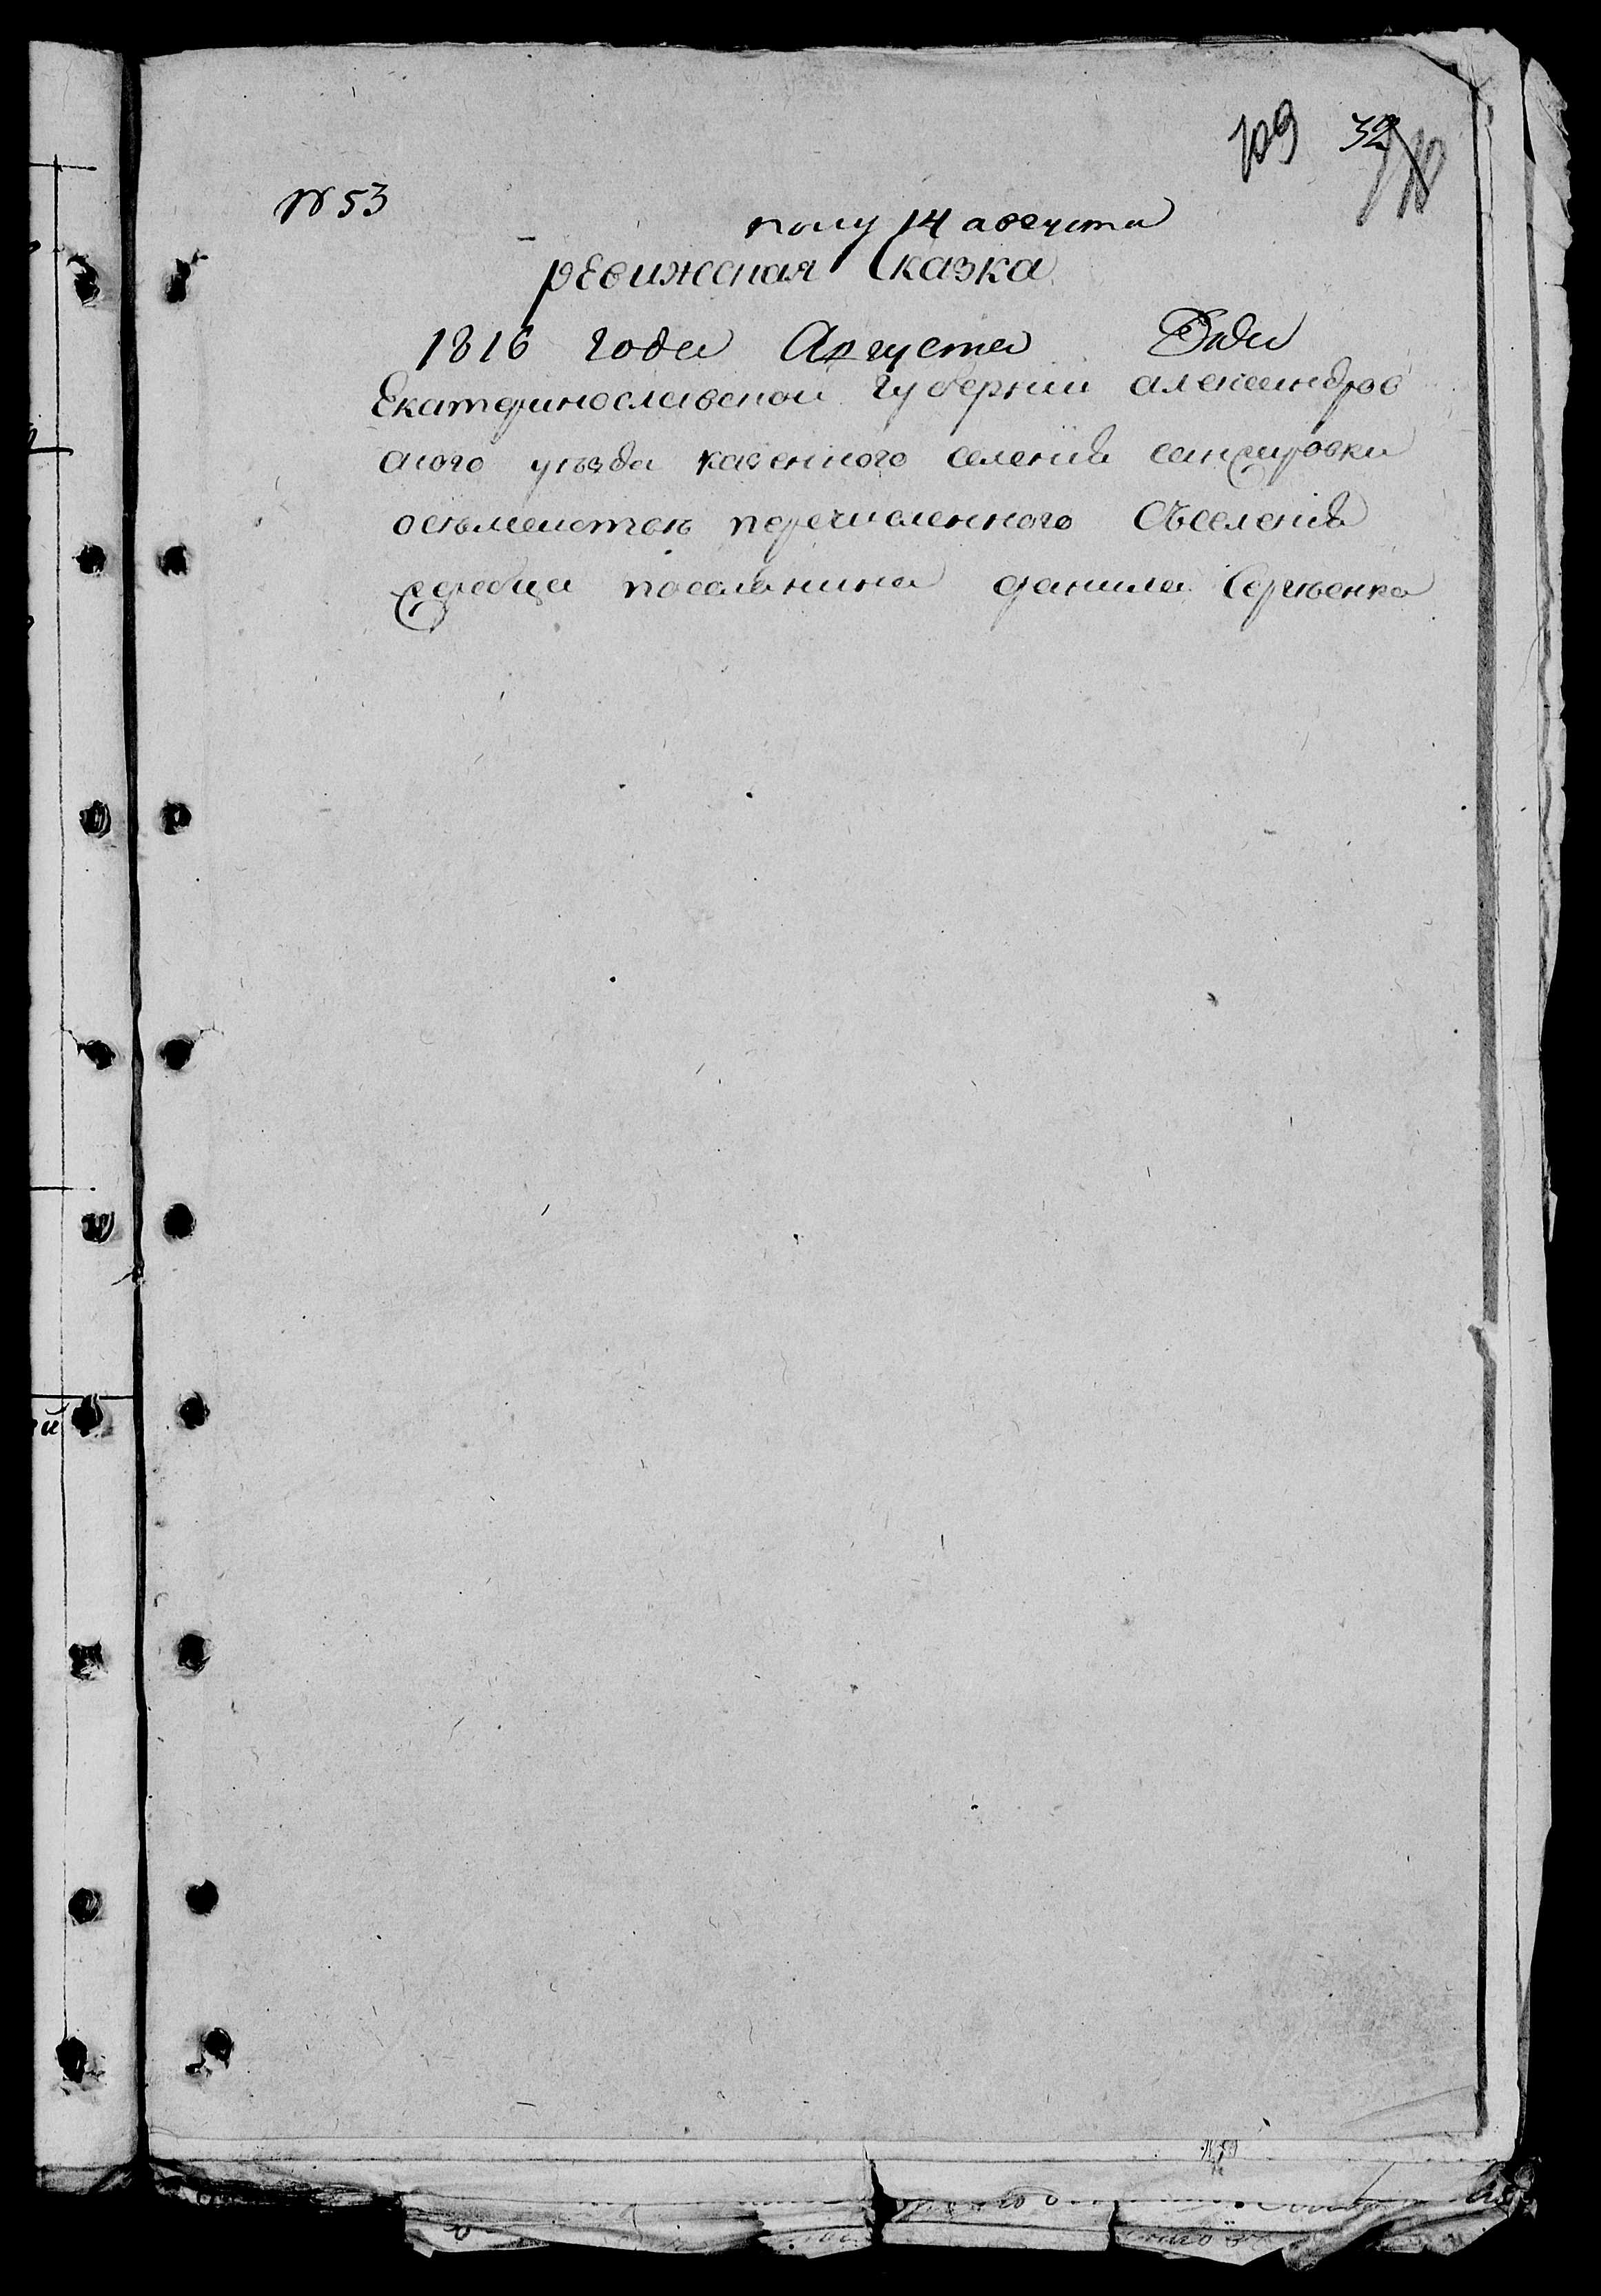 109 32
№ 53
полу 14 августа
ревижская Сказка
1816 года Августа дня
Екатеринославской губернии александров
ского уезда казенного селения санжаровки
перечисленного Съселения
жеребца поселянина данила Сергѣенка